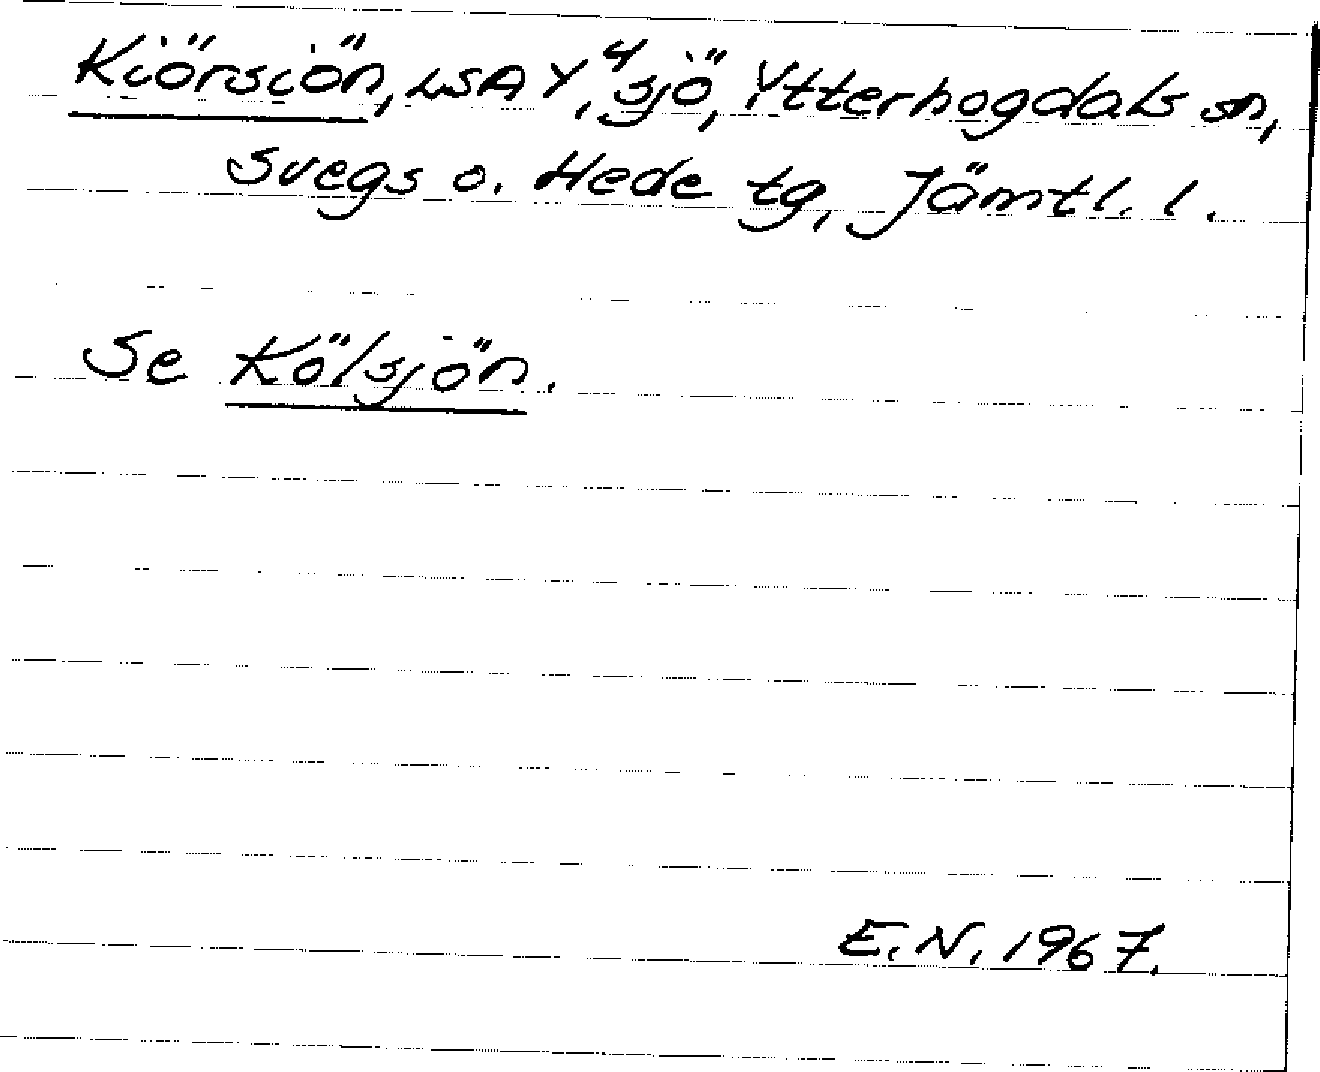 Kiörsiön, LSA Y,⁴ sjö, Ytterhogdals sn,
Svegs o. Hede tg, Jämtl. l.
Se Kölsjön.
E.N. 1967.